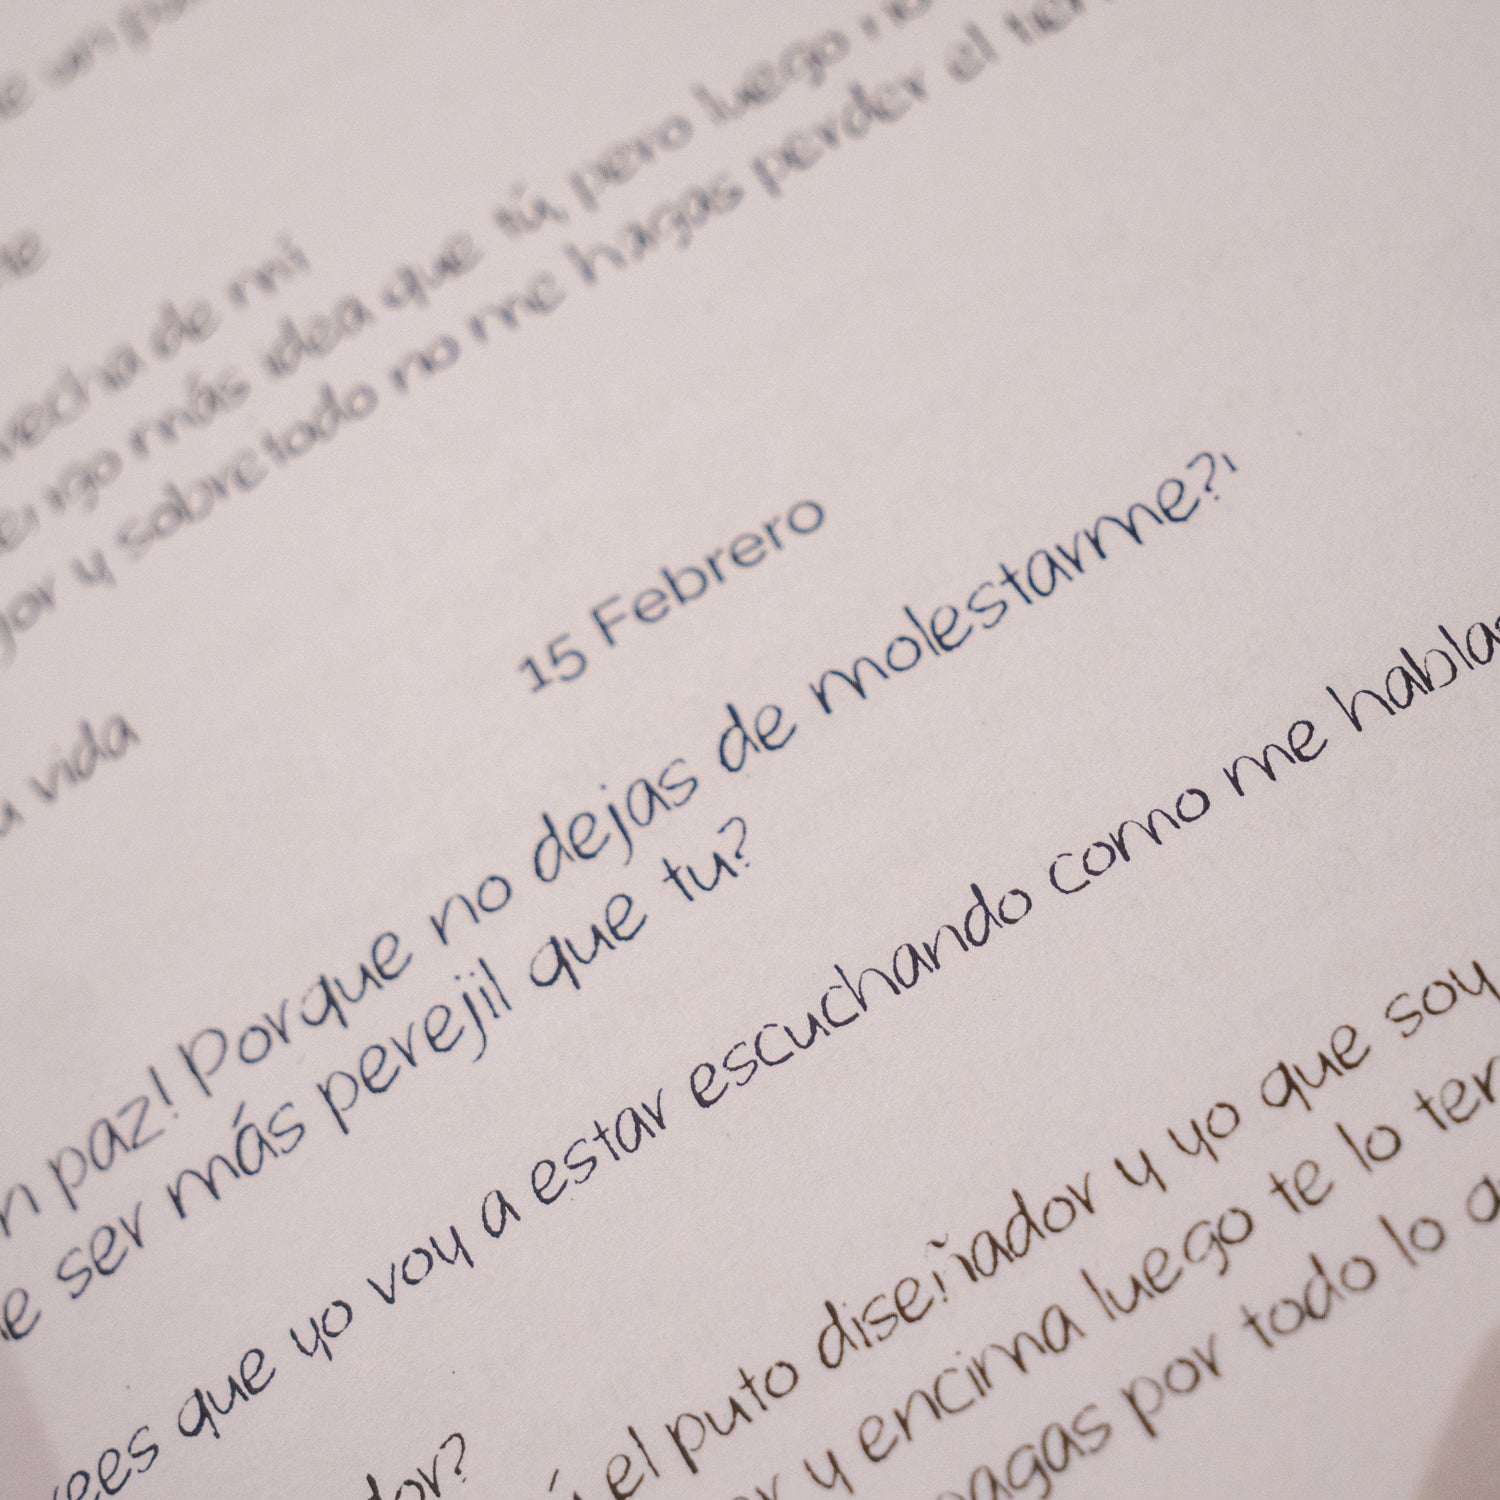 vecha de mi
tengo más idea que tú, pero luego no
y sobretodo no me hagas perder el
vida
15 Febrero
n paz! Porque no dejas de molestarme?¡
e ser más perejil que tu?
ees que yo voy a estar escuchando como me hablas
dor?
el puto diseñador y yo que soy
r y encima luego te lo ten
pagas por todo lo q